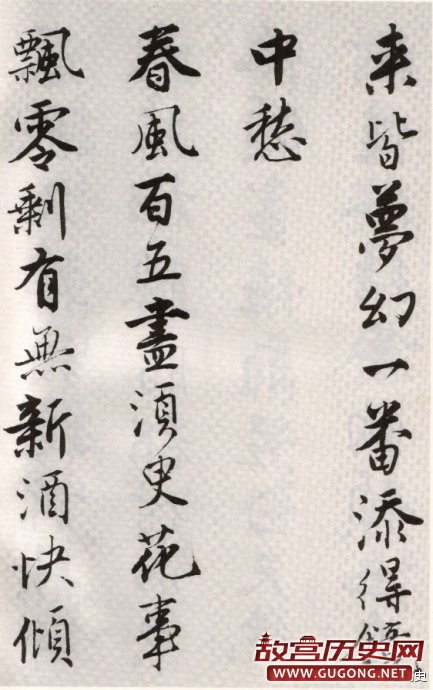 来皆夢幻一番添得鏡
中愁
春風百五盡湏臾花事
飄零剩有無新酒快傾
故宫历史网
WWW.GUGONG.NET
史